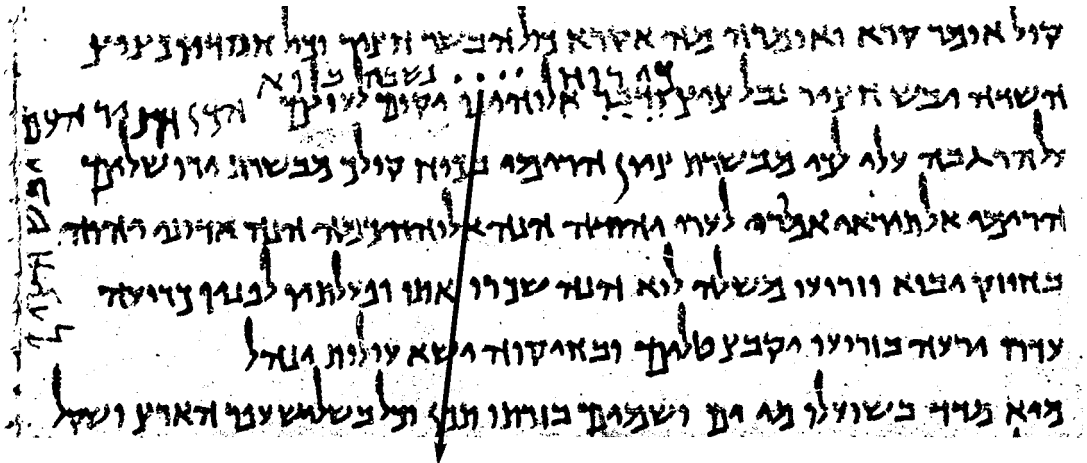 קול אומר קרא ואומרה מה אקרא כול הבשר חציר וכול חסדיו כציץ
כי רוח .... נשבה בוא
השדה יבש חציר נבל ציץ ודבר אלוהינו יקום לעולם הכן חציר העם
על הר גבה עלי לכי מבשרת ציון הרימי בכוח קולך מבשרת ירושלים
הרימי אל תיראי אמרי לערי יהודה הנה אלוהיכמה הנה אדוני יהוה
בחוזק יבוא וזרועו משלה לוא הנה שכרו אתו ופעלתיו לפניו כרועה
עדרו ירעה בזרועו יקבץ טלים ובחיקוה ישא עולות ינהל
מיא מדד בשועלו מי ים ושמים בזרתו תכן וכל בשליש עפר הארץ ושקל
יבש חציר נבל